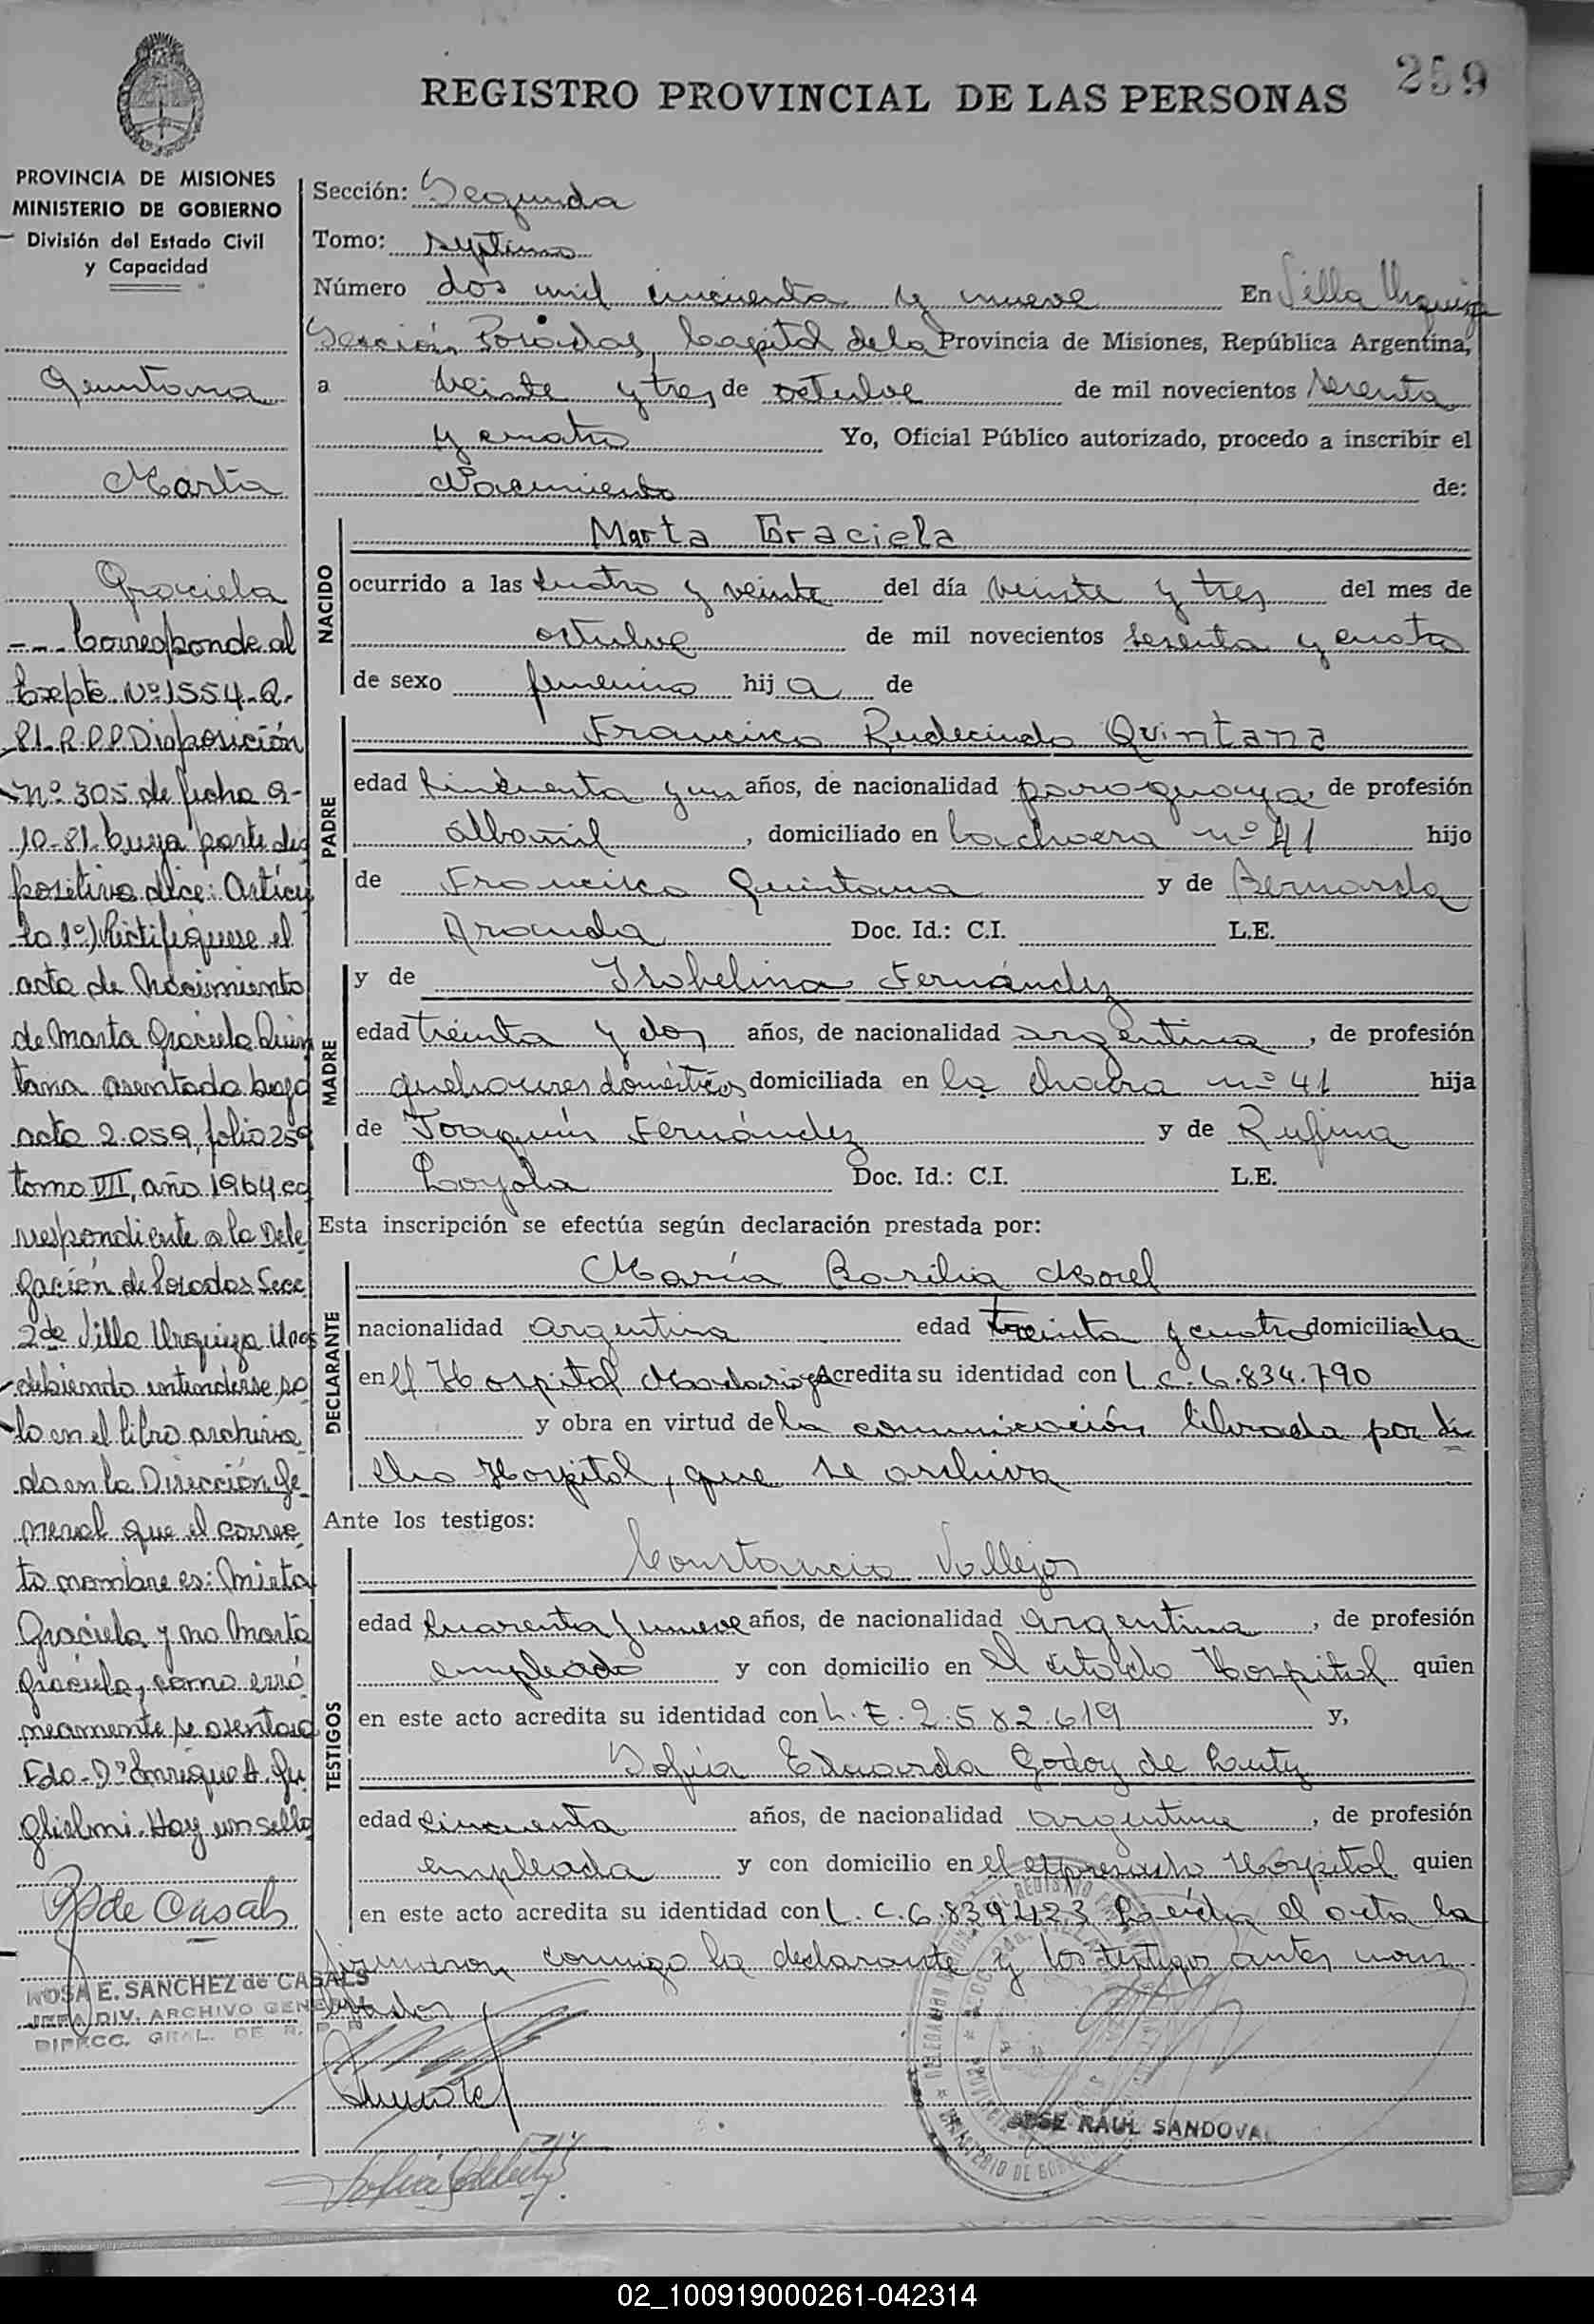 259
REGISTRO PROVINCIAL DE LAS PERSONAS
PROVINCIA DE MISIONES
MINISTERIO DE GOBIERNO
División del Estado Civil
y Capacidad
Quintana
Marta
Graciela
--- Corresponde al
Expte. Nº 1554-Q-
81-R.P.P. Disposición
Nº 305 de fecha 9-
10-81. Cuya parte dis
positiva dice: Artícu
lo 1º) Rectifíquese el
acta de Nacimiento
de Marta Graciela Quin
tana asentada bajo
acta 2.059, folio 259
tomo VII, año 1964 co
rrespondiente a la Dele
gación de Posadas Secc
2da Villa Urquiza Mnes
debiendo entenderse so
lo en el libro archiva
do en la Dirección Ge-
neral que el correc
to nombre es: Mirta
Graciela y no Marta
Graciela, como erró
neamente se asentara
Fdo. Dº Enrique A. Gu
glielmi. Hay un sello
R S de Casals
ROSA E. SANCHEZ de CASALS
JEFA DIV. ARCHIVO GENERAL
DIRECC. GRAL. DE R. P. P.
Sección: Segunda
Tomo: septimo
Número dos mil cincuenta y nueve En Villa Urquiza
Sección Posadas, Capital de la Provincia de Misiones, República Argentina,
a veinte y tres de octubre de mil novecientos sesenta
y cuatro Yo, Oficial Público autorizado, procedo a inscribir el
Nacimiento de:
NACIDO
Marta Graciela
ocurrido a las cuatro y veinte del día veinte y tres del mes de
octubre de mil novecientos sesenta y cuatro
de sexo femenino hij a de
PADRE
Francisco Rudecindo Quintana
edad cincuenta y un años, de nacionalidad paraguaya, de profesión
albañil, domiciliado en la chacra nº 41 hijo
de Francisco Quintana y de Bernarda
Aranda Doc. Id.: C.I. L.E.
MADRE
y de Isabelina Fernández
edad treinta y dos años, de nacionalidad argentina, de profesión
quehaceres domésticos domiciliada en la chacra nº 41 hija
de Joaquín Fernández y de Rufina
Loyola Doc. Id.: C.I. L.E.
Esta inscripción se efectúa según declaración prestada por:
DECLARANTE
María Basilia Morel
nacionalidad argentina edad treinta y cuatro domiciliada
en el Hospital Madariaga Acredita su identidad con L.C. 6.834.790
y obra en virtud de la comunicación librada por di
cho Hospital, que se archiva
Ante los testigos:
TESTIGOS
Constancio Vallejos
edad cuarenta y nueve años, de nacionalidad argentina, de profesión
empleado y con domicilio en el citado Hospital quien
en este acto acredita su identidad con L.E. 2.582.619 y,
Sofia Eduarda Godoy de
edad cincuenta años, de nacionalidad argentina, de profesión
empleada y con domicilio en el expresado Hospital quien
en este acto acredita su identidad con L.C. 6.839.423 Leída el acta la
firmaron conmigo la declarante y los testigos antes nom
brados
JOSE RAUL SANDOVAL
02_100919000261-042314